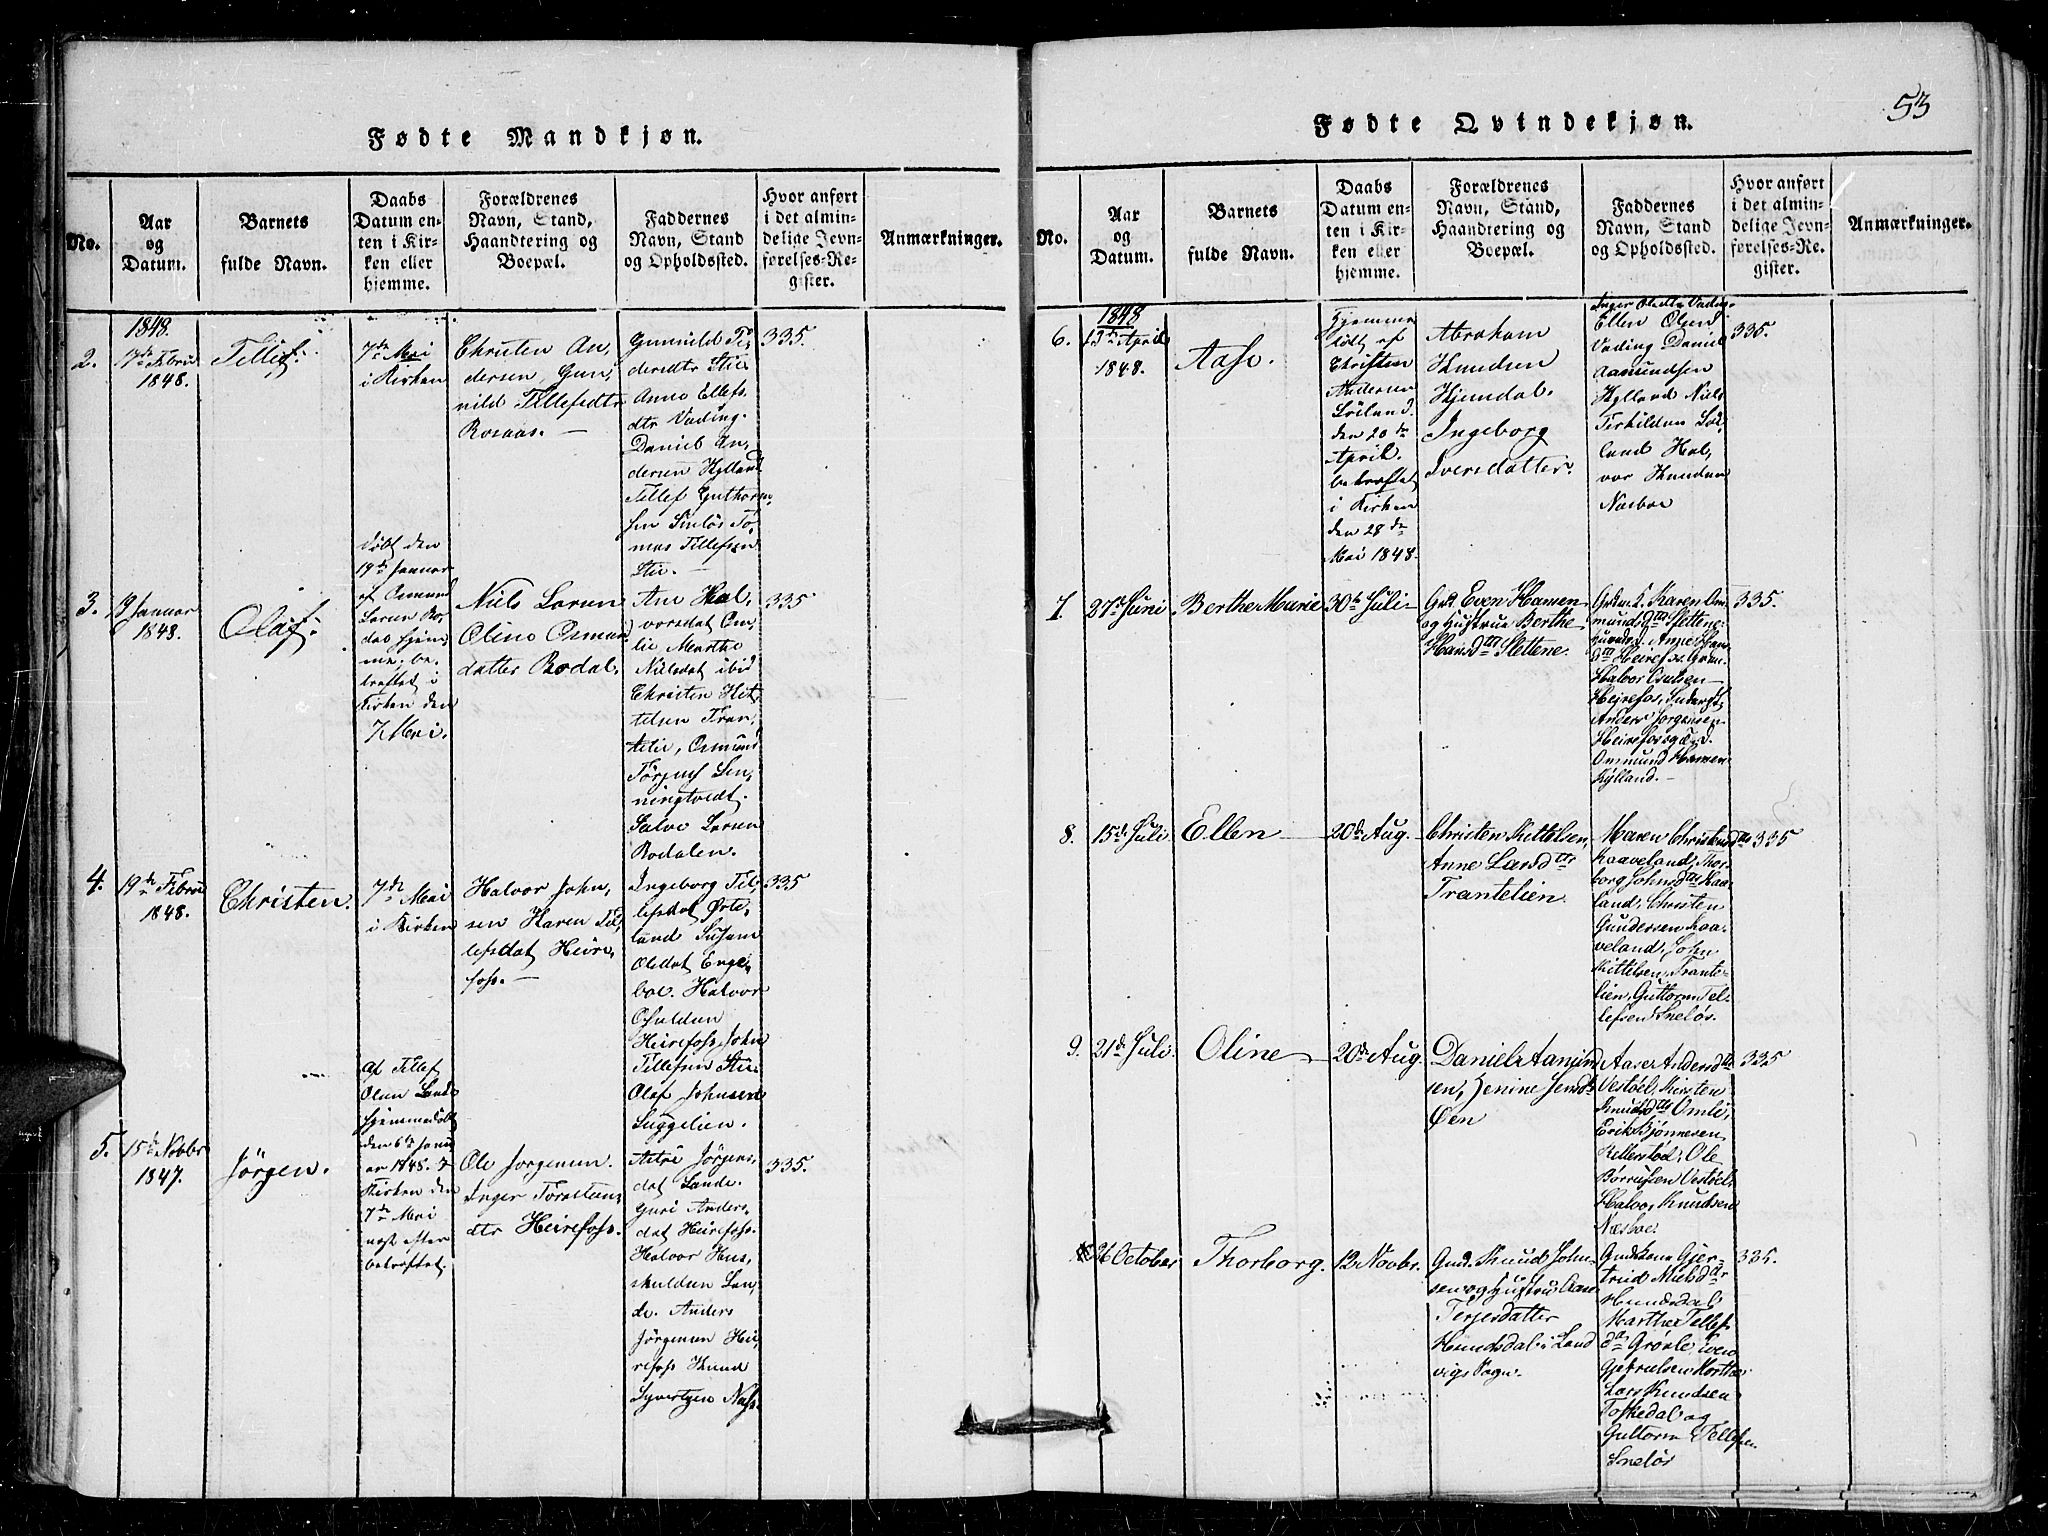 53
Fødte Mandkjøn.
No.
Aar
og
Datum.
Barnets
fulde Navn.
Daabs
Datum en-
ten i Kir-
ken eller
hjemme.
Forældrenes
Navn, Stand,
Haandtering og
Boepæl.
Faddernes
Navn, Stand
og Opholdssted.
Hvor anført
i det almin-
delige Jevn-
førelses-Re-
gister.
Anmærkninger.
2.
1848.
17de Febru
1848.
Tellef.
7de Mai
i Kirken
Christen An,
dersen, Gun,
nild Tellefsdtr
Rosaas. —
Gunnild Ti
dersdtr Stie
Anne Ellefs
dtr Vading.
Daniel An,
dersen Hylland
Tellef Guthorm,
sen Snelös To,
mas Tellefsen
Stie. —
335.
3.
19 Januar
1848.
Olaf.
döbt den
19de Januar
af Osmund
Larsen Ro,
dal hjem,
me, be,
kræftet i
Kirken den
7 Mai.
Niels Larsen
Oline Osmun
datter Rodal.
Ane Hal,
vorsdat Om,
lie Marthe
Nielsdat ibid
Christen Kit,
telsen Tran,
telie, Osmund
Törjus Len,
ningtvedt.
Salve Larsen
Rodalen.
335
4.
19de Febru
1848.
Christen.
7de Mai
i Kirken
Halvor John,
sen Karen Tel,
lefsdat Heire,
foss. —
Ingeborg Tel,
lefsdat Örte,
land Susan
Olsdat Enge,
boe. Halvor
Osuldsen
Heirefoss, John
Tellefsen Stie.
Olaf Johnsen
Luggelien.
335
5.
15de Novbr
1847.
Jörgen.
Af Tellef
Olsen Lande
hjemmedöbt
den 6te Janu
ar 1848. I
Kirken den
7de Mai
næst efter
bekræftet.
Ole Jorgensen.
Inger Torsten,
dtr Heirefoss.
Aslre Jörgens,
dat Lande.
Guri Anders,
dat Heirefoss.
Halvor Hus,
skuldsen Lan,
de. Anders
Jörgensen Hei,
refoss Knud
Syvertsen Næs.
335.
Fødte Qvindekjøn.
No.
Aar
og
Datum.
Barnets
fulde Navn.
Daabs
Datum en-
ten i Kir-
ken eller
hjemme.
Forældrenes
Navn, Stand,
Haandtering og
Boepæl.
Faddernes
Navn, Stand
og Opholdssted.
Hvor anført
i det almin-
delige Jevn-
førelses-Re-
gister.
Anmærkninger.
6.
1848
13de April
1848.
Aase.
Hjemme
döbt af
Christen
Andersen
Löiland.
den 20de
April.
bekræftet
i Kirken
den 28de
Mai 1848.
Abraham
Knudsen
Hjemdal.
Ingeborg
Iversdatter.
Inger Olsdtr Vading.
Ellen Olsen
Vading Daniel
Aamundsen
Hylland Niels
Terkildsen Löi,
land Hal,
vor Knudsen
Næsboe
335.
7.
27de Juni
Berthe Marie
30te Juli
Grd. Even Hansen
og Hustrue Berthe
Hansdtr Slettene.
Grkm. k. Karen Om,
mundsdtr Slettene.
hunsd. d. Anne Hans
dtr Heirefos, Grm.
Halvor Osulsen—
Heirefos,
Anders Jorgensen
Heirefos og
Ommund Hansen
Hylland. —
335.
8.
15de Juli.
Ellen —
20de Aug.
Christen Kittelsen,
Anne Larsdtr
Trantelien.
Maren Christensdtr
Kaaveland, Thor,
borg Johnsdtr Kaa,
land, Christen
Gundersen Kaa,
veland, John
Kittelsen, Trante,
lien, Guttorm Tel,
lefsen Snelös.
335
9.
21de Juli.
Oline —
20de Aug
Daniel Aamund
sen, Jenine Jensdtr
Øen
Aase Andersdtr
Vestöel, Kirsten
Knudsdtr Omli,
Erik Bjönnesen
Ole
Börrulsen Vestöel,
Halvor Knudsen
Næsboe
335
26 October
Thorborg.
12 Novbr.
Gmd. Knud John,
sen og Hustru Aase
Terjesdatter
Hundsdal i Land
vigs Sogn.
Gmdskone Gjer,
trud Nielsdtr
Hundsdal
Marthe Tellefs
dtr Grösle, Iven
Gjetruelsen
Lars Knudsen
Toskedal og
Guttorm Tellefsen
Snelös
335.